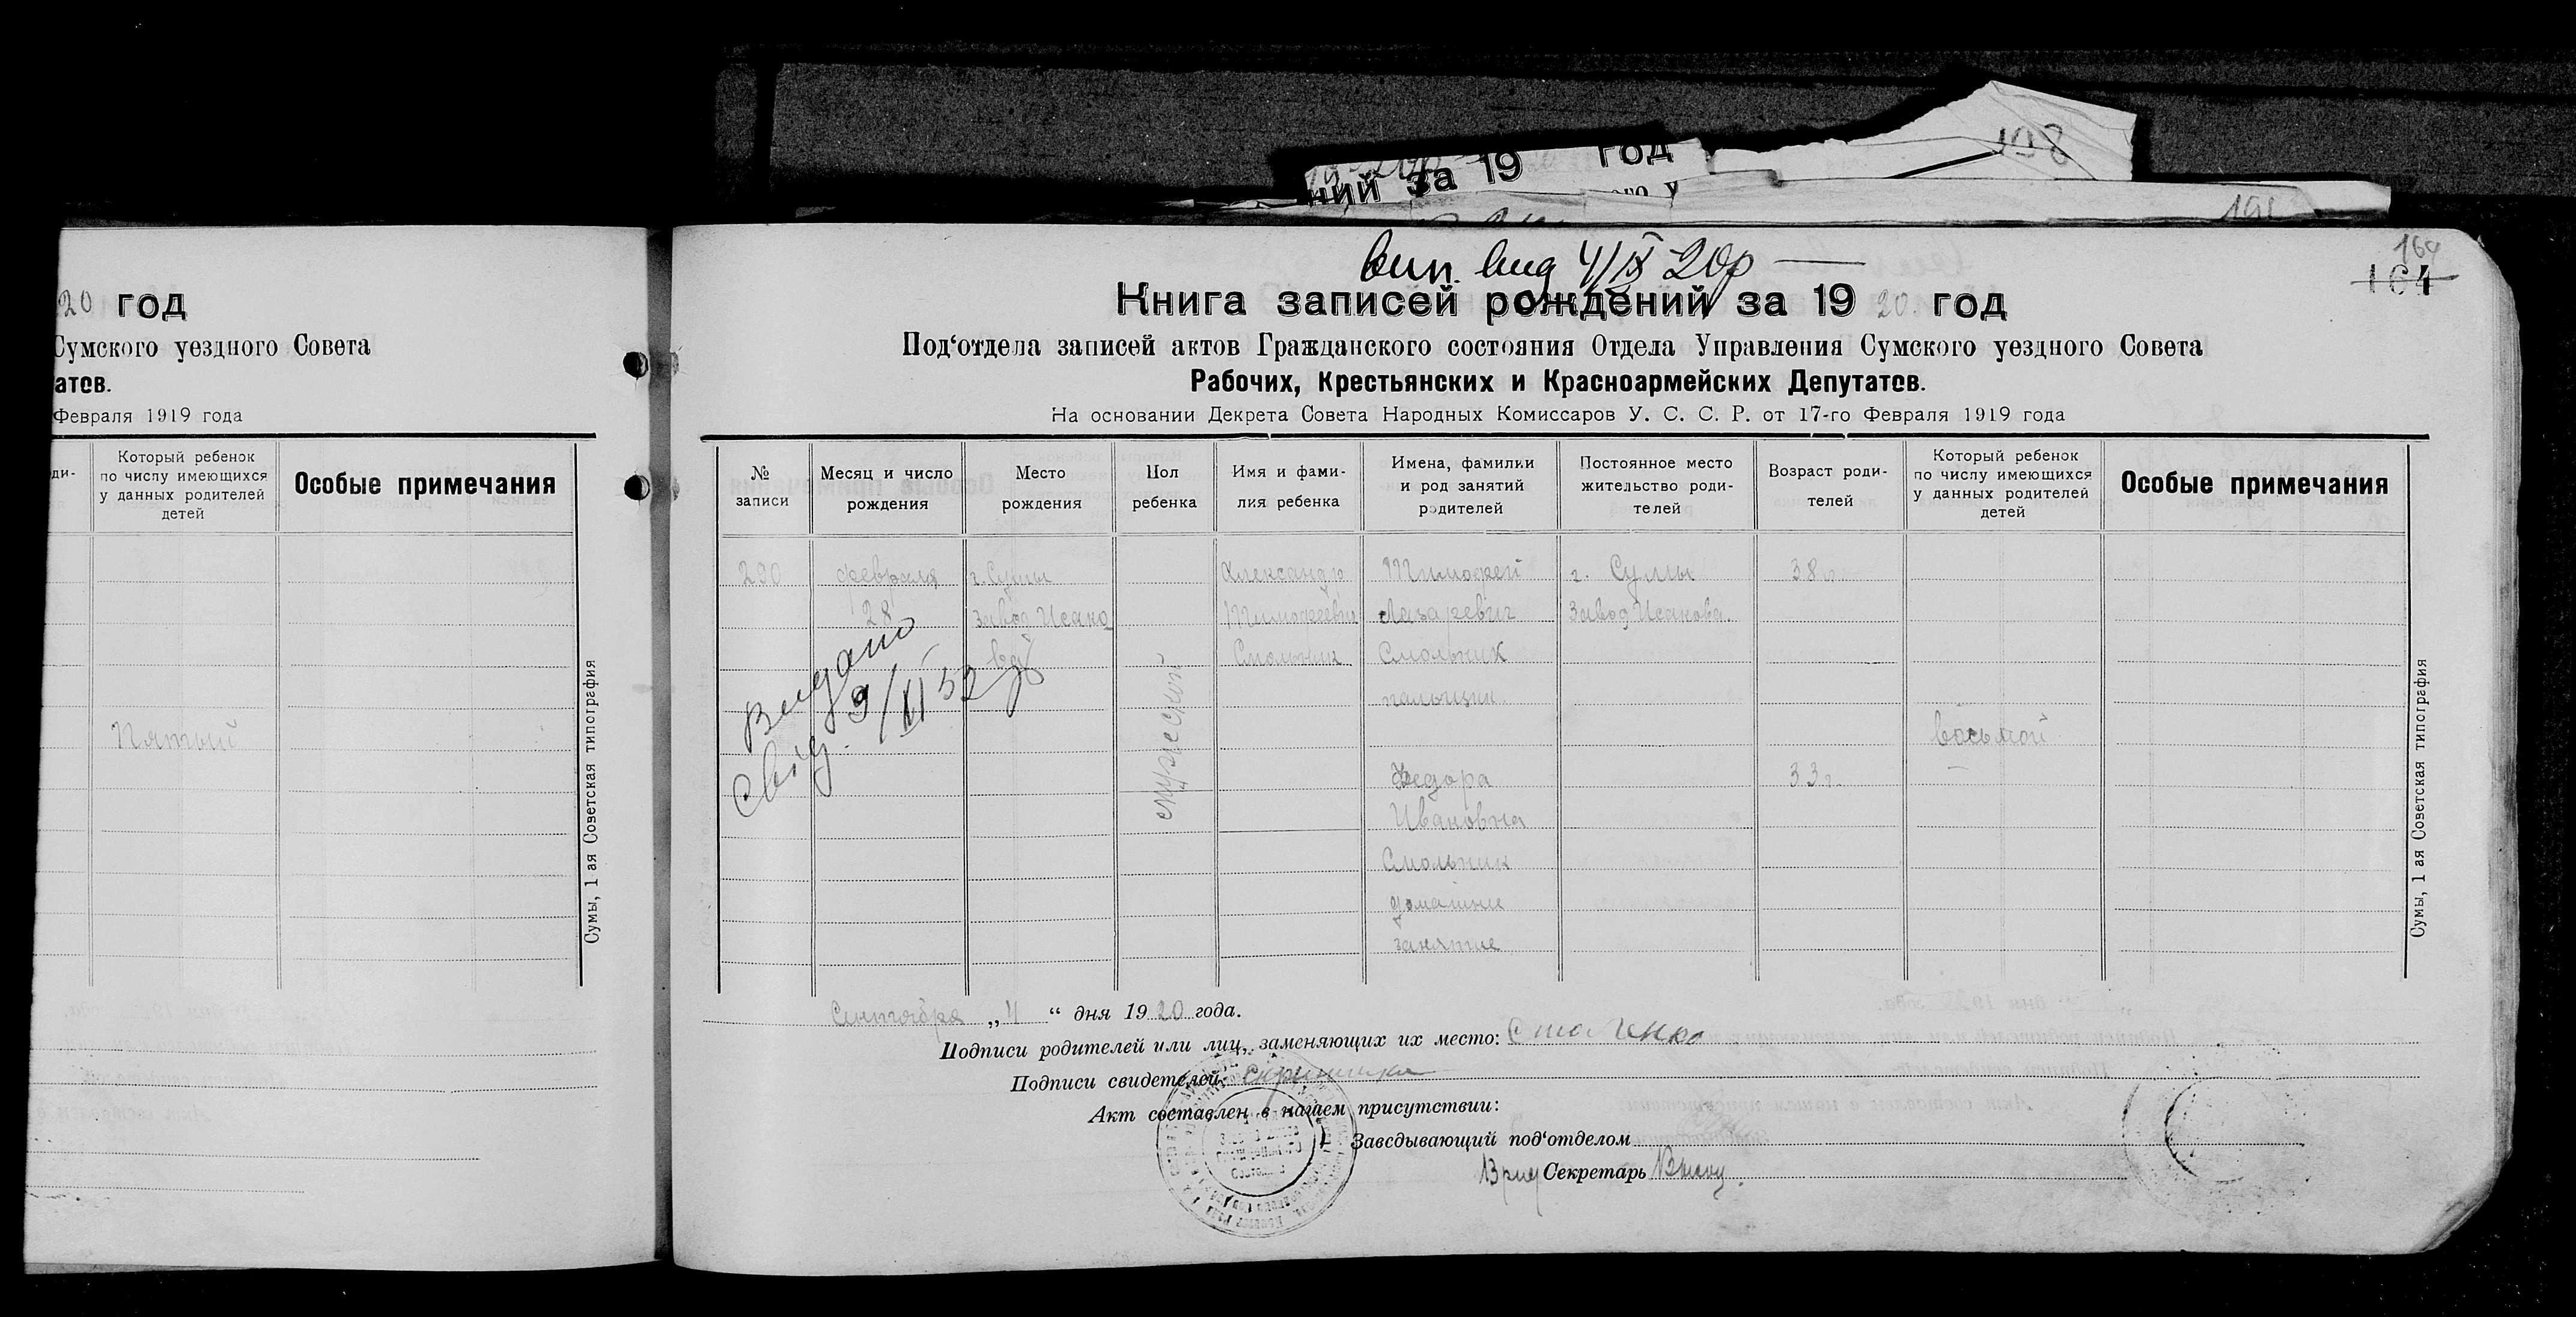 ний за 19 год
198
191
20 год
Сумского уездного Совета
атов.
Февраля 1919 года
ди-
Который ребенок
по числу имеющихся
у данных родителей
детей
Особые примечания
Пятый
Сумы, 1 ая Советская типография
вип. вид 4/IX 20р
164
164
Книга записей рождений за 1920 год
Под‘отдела записей актов Гражданского состояния Отдела Управления Сумского уездного Совета
Рабочих, Крестьянских и Красноармейских Депутатов.
На основании Декрета Совета Народных Комиссаров У. С. С. Р. от 17-го Февраля 1919 года
№
записи
Месяц и число
рождения
Место
рождения
Пол
ребенка
Имя и фами-
лия ребенка
Имена, фамилии
и род занятий
родителей
Постоянное место
жительство роди-
телей
Возраст роди-
телей
Который ребенок
по числу имеющихся
у данных родителей
детей
Особые примечания
290
февраля
28
г. Сумы
Завод Исако
ва
мужеский
Александр
Тимофеевич
Смольник
Тимофей
Лазаревич
Смольник
Федора
Ивановна
Смольник
домашние
занятие
г. Сумы
Завод Исакова.
38 л.
33 г.
восьмой
Видано
свид. 9/XI 52
Сумы, 1 ая Советская типография
Сентября „4“ дня 1920 года.
Подписи родителей или лиц, заменяющих их место:
Подписи свидетелей:
Акт составлен в нашем присутствии:
Заведывающий под‘отделом
Врид Секретарь